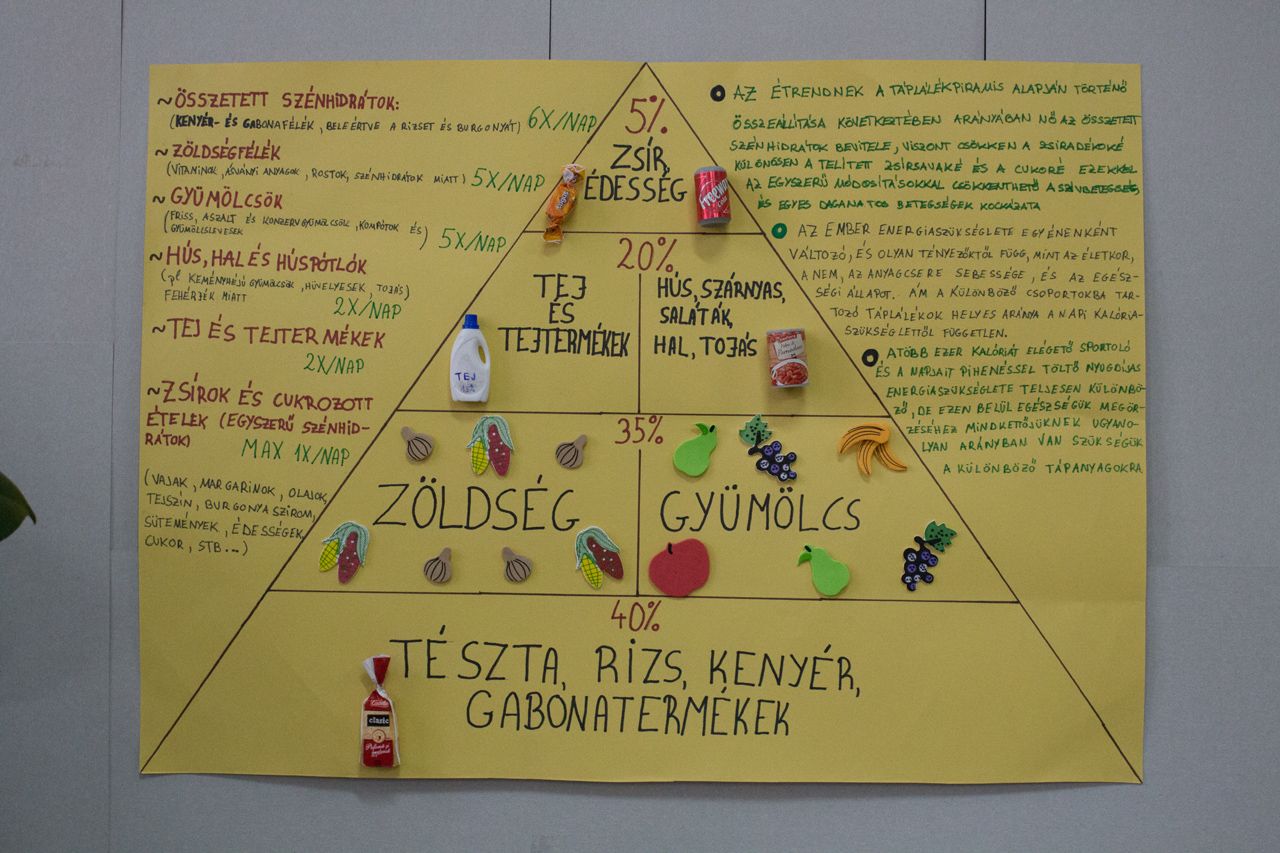 ~ÖSSZETETT SZÉNHIDRÁTOK:
(KENYÉR- ÉS GABONAFÉLÉK, BELEÉRTVE A RIZSET ÉS BURGONYÁT) 6X/NAP
~ZÖLDSÉGFÉLÉK
(VITAMINOK, ÁSVÁNYI ANYAGOK, ROSTOK, SZÉNHIDRÁTOK MIATT) 5X/NAP
~GYÜMÖLCSÖK
(FRISS, ASZALT ÉS KONZERVGYÜMÖLCSÖK, KOMPÓTOK ÉS
GYÜMÖLSLEVESEK) 5X/NAP
~HÚS, HAL ÉS HÚSPÓTLÓK
(pl KEMÉNYHÉJÚ GYÜMÖLCSÖK, HÜVELYESEK, TOJÁS)
FEHÉRJÉK MIATT
2X/NAP
~TEJ ÉS TEJTERMÉKEK
2X/NAP
~ZSÍROK ÉS CUKROZOTT
ÉTELEK (EGYSZERŰ SZÉNHID-
RÁTOK)
MAX 1X/NAP
(VAJAK, MARGARINOK, OLAJOK,
TEJSZÍN, BURGONYASZIROM,
SÜTEMÉNYEK, ÉDESSÉGEK,
CUKOR, STB...)
5%
ZSÍR,
ÉDESSÉG
Freeway
Cola
20%
TEJ
ÉS
TEJTERMÉKEK
HÚS, SZÁRNYAS,
SALÁTÁK,
HAL, TOJÁS
TEJ
35%
ZÖLDSÉG
GYÜMÖLCS
40%
TÉSZTA, RIZS, KENYÉR,
GABONATERMÉKEK
clasic
AZ ÉTRENDNEK A TÁPLÁLÉKPIRAMIS ALAPJÁN TÖRTÉNŐ
ÖSSZEÁLLÍTÁSA KÖVETKEZTÉBEN ARÁNYÁBAN NŐ AZ ÖSSZETETT
SZÉNHIDRÁTOK BEVITELE, VISZONT CSÖKKEN A ZSIRADÉKOKÉ
KÜLÖNÖSEN A TELÍTETT ZSÍRSAVAKÉ ÉS A CUKORÉ EZEKKEL
AZ EGYSZERŰ MÓDOSÍTÁSOKKAL CSÖKKENTHETŐ A SZÍVBETEGSÉG
ÉS EGYES DAGANATOS BETEGSÉGEK KOCKÁZATA
AZ EMBER ENERGIASZÜKSÉGLETE EGYÉNENKÉNT
VÁLTOZÓ, ÉS OLYAN TÉNYEZŐKTŐL FÜGG, MINT AZ ÉLETKOR,
A NEM, AZ ANYAGCSERE SEBESSÉGE, ÉS AZ EGÉSZ-
SÉGI ÁLLAPOT. ÁM A KÜLÖNBÖZŐ CSOPORTOKBA TAR-
TOZÓ TÁPLÁLÉKOK HELYES ARÁNYA A NAPI KALÓRIA-
SZÜKSÉGLETTŐL FÜGGETLEN.
A TÖBB EZER KALÓRIÁT ELÉGETŐ SPORTOLÓ
ÉS A NAPJAIT PIHENÉSSEL TÖLTŐ NYUGDÍJAS
ENERGIASZÜKSÉGLETE TELJESEN KÜLÖNBÖ-
ZŐ, DE EZEN BELÜL EGÉSZSÉGÜK MEGŐR-
ZÉSÉHEZ MINDKETTŐJÜKNEK UGYANO-
LYAN ARÁNYBAN VAN SZÜKSÉGÜK
A KÜLÖNBÖZŐ TÁPANYAGOKRA